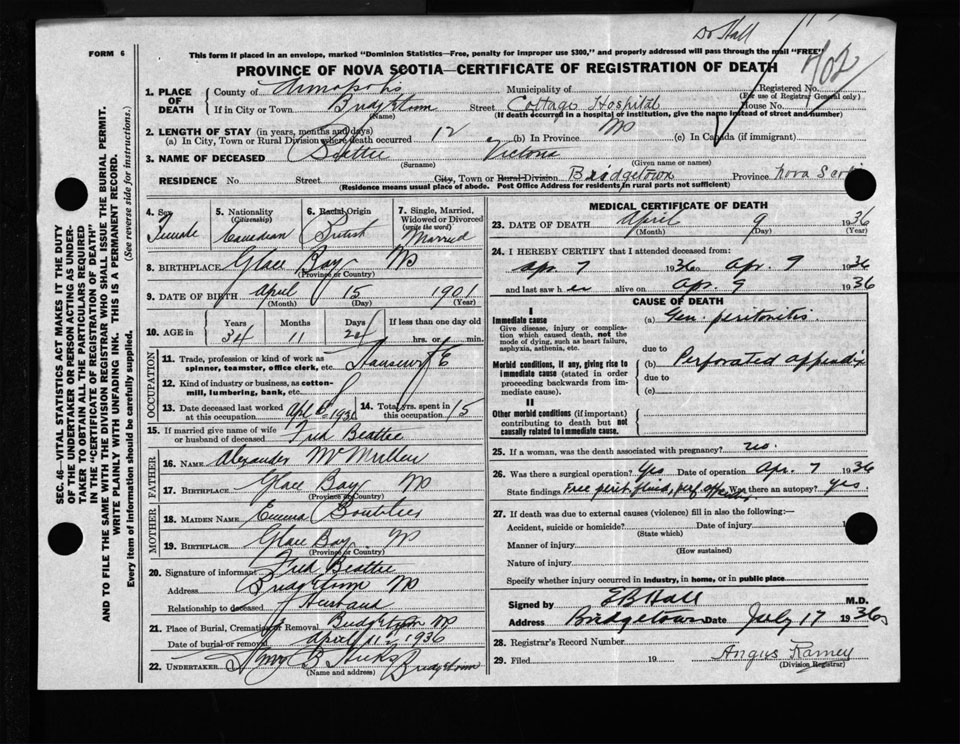 Dr Hall
FORM 6
This form if placed in an envelope, marked "Dominion Statistics—Free, penalty for improper use $300," and properly addressed will pass through the mail "FREE"
402
PROVINCE OF NOVA SCOTIA—CERTIFICATE OF REGISTRATION OF DEATH
1. PLACE OF DEATH
County of Annapolis Municipality of Registered No.
(For use of Registrar General only)
If in City or Town Bridgetown Street Cottage Hospital House No.
(Name) (If death occurred in a hospital or institution, give the name instead of street and number)
2. LENGTH OF STAY (in years, months and days)
(a) In City, Town or Rural Division where death occurred 12 (b) In Province (c) In Canada (if immigrant)
3. NAME OF DECEASED Beattie Victoria
(Surname) (Given name or names)
RESIDENCE No Street City, Town or Rural Division Bridgetown Province Nova Scotia
(Residence means usual place of abode. Post Office Address for residents in rural parts not sufficient)
4. Sex Female
5. Nationality (Citizenship) Canadian
6. Racial Origin British
7. Single, Married, Widowed or Divorced (write the word) Married
8. BIRTHPLACE Glace Bay NS
(Province or Country)
9. DATE OF BIRTH April 15 1901
(Month) (Day) (Year)
10. AGE in Years 34 Months 11 Days 24 If less than one day old hrs. or min.
OCCUPATION
11. Trade, profession or kind of work as spinner, teamster, office clerk, etc. Housewife
12. Kind of industry or business, as cotton-mill, lumbering, bank, etc.
13. Date deceased last worked at this occupation April 1936
14. Total yrs. spent in this occupation 15
15. If married give name of wife or husband of deceased Fred Beattie
FATHER
16. NAME Alexander McMullen
17. BIRTHPLACE Glace Bay NS
(Province or Country)
MOTHER
18. MAIDEN NAME Emma
19. BIRTHPLACE Glace Bay NS
(Province or Country)
20. Signature of informant Fred Beattie
Address Bridgetown NS
Relationship to deceased Husband
21. Place of Burial, Cremation or Removal Bridgetown NS
Date of burial or removal April 11 1936
22. UNDERTAKER B Hicks Bridgetown
(Name and address)
MEDICAL CERTIFICATE OF DEATH
23. DATE OF DEATH April 9 1936
(Month) (Day) (Year)
24. I HEREBY CERTIFY that I attended deceased from:
Apr. 7 1936 to Apr. 9 1936
and last saw her alive on Apr. 9 1936
CAUSE OF DEATH
I
Immediate cause (a) Gen. peritonitis
Give disease, injury or complication which caused death, not the mode of dying, such as heart failure, asphyxia, asthenia, etc.
due to
Morbid conditions, if any, giving rise to immediate cause (stated in order proceeding backwards from immediate cause). (b) Perforated appendix
due to
(c)
II
Other morbid conditions (if important) contributing to death but not causally related to immediate cause.
25. If a woman, was the death associated with pregnancy? no.
26. Was there a surgical operation? Yes Date of operation Apr. 7 1936
State findings Free perit fluid, perf appendix Was there an autopsy? yes.
27. If death was due to external causes (violence) fill in also the following:—
Accident, suicide or homicide? Date of injury 1
(State which)
Manner of injury
(How sustained)
Nature of injury
Specify whether injury occurred in industry, in home, or in public place
Signed by E B Hall M.D.
Address Bridgetown Date July 17 1936
28. Registrar's Record Number
29. Filed 19 Angus Ramey
(Division Registrar)
SEC. 46—VITAL STATISTICS ACT MAKES IT THE DUTY
OF THE UNDERTAKER OR PERSON ACTING AS UNDER-
TAKER TO OBTAIN ALL THE PARTICULARS REQUIRED
IN THE "CERTIFICATE OF REGISTRATION OF DEATH"
AND TO FILE THE SAME WITH THE DIVISION REGISTRAR WHO SHALL ISSUE THE BURIAL PERMIT.
WRITE PLAINLY WITH UNFADING INK. THIS IS A PERMANENT RECORD.
Every item of information should be carefully supplied. (See reverse side for instructions.)